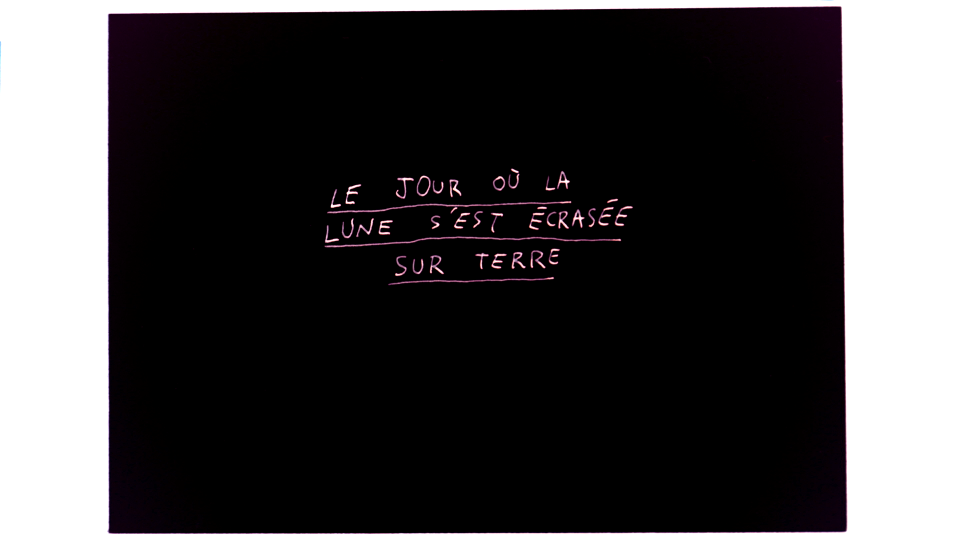 LE JOUR OÙ LA
LUNE S'EST ÉCRASÉE
SUR TERRE